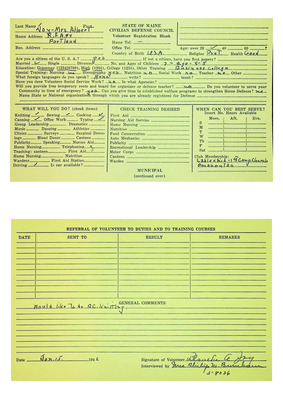 Last Name Day-Mrs. Albert First
STATE OF MAINE
CIVILIAN DEFENSE COUNCIL
Volunteer Registration Blank
Home Address R.F.D.#4
Portland
Home Tel.
Bus. Address
Office Tel.
Age: over
Country of Birth U.S.A.
Religion Prot. Health Good
Are you a citizen of the U. S. A.? yes
If not a citizen, have you first papers?
Married No. and Ages of Children
Education: Grammar High College, Office, Other Training Business College
Special Training: Nursing no Stenography yes Nutrition no Social Work no Teacher no Other
What foreign languages do you speak? None write?
Have you done Volunteer Social Service Work? no In what Agencies?
Will you provide free temporary room and board for organizer or defense teacher? no Do you volunteer to serve your
Community in time of emergency? yes Can you give time to established welfare programs to strengthen Home Defense? no
Name State or National organization through which you are already registered for Defense
WHAT WILL YOU DO? (check items)
Knitting Sewing Cooking
Canning Office Work Typing
Group Leadership Dramatics
Music Dancing Athletics
Clinics Surveys Hospital
Blood Donor Canteen
Publicity Speaking Nurses Aid
Home Nursing Telephoning
Teaching: canteen First Aid
Home Nursing Nutrition
Wardens First Aid Station
Driving Is car available?
CHECK TRAINING DESIRED
First Aid
Nursing Aid Service
Home Nursing
Nutrition
Food Conservation
Auto Mechanics
Publicity
Recreational Leadership
Motor Corps
Canteen
Warden
WHEN CAN YOU BEST SERVE?
Insert No. Hours Available
Morn. Aft. Eve.
M
T
W
T
F
Sat
Club Membership
Pocahontas
MUNICIPAL
(continued over)
REFERRAL OF VOLUNTEER TO DUTIES AND TO TRAINING COURSES
DATE SENT TO RESULT REMARKS
GENERAL COMMENTS
Would like to do R.C. knitting
Date Jan. 15 1942 Signature of Volunteer Blanche A. Day
Interviewed by Mrs. Philip M.